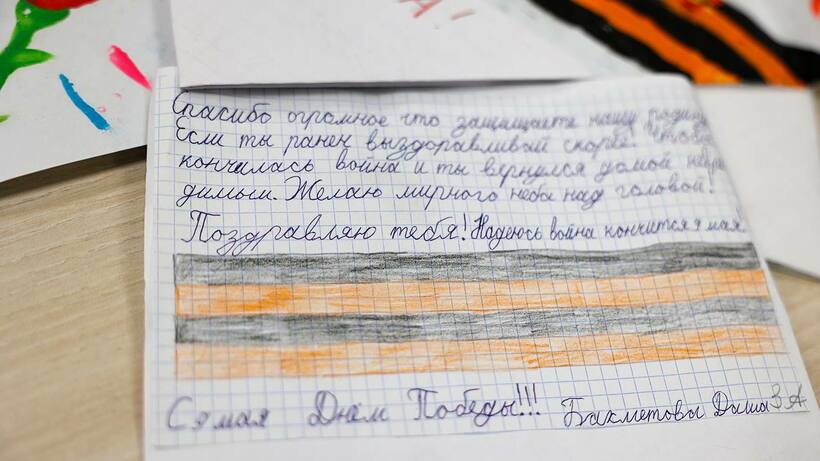 А!
Спасибо огромное что защищаете нашу родину
Если ты ранен выздоравливай скорее. Чтобы
кончилась война и ты вернулся домой невре
димым. Желаю мирного неба над головой!
Поздравляю тебя! Надеюсь война кончится 9 мая.
С 9 мая Днём Победы!!! Бакметова Даша 3 А